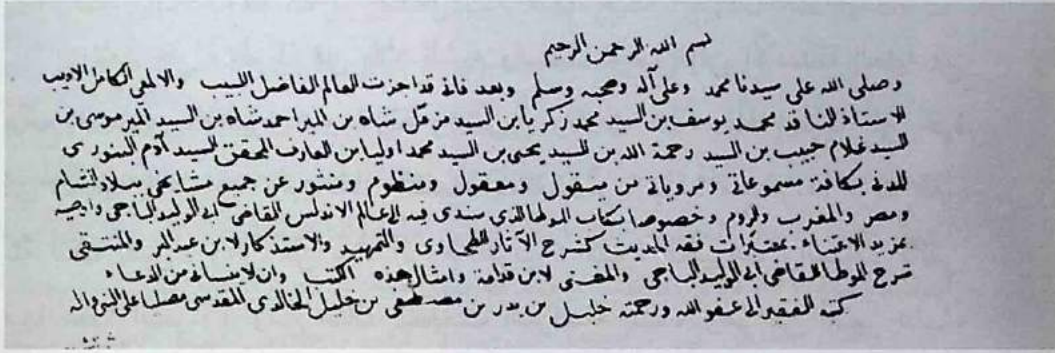 بسم الله الرحمن الرحيم
وصلى الله على سيدنا محمد وعلى آله وصحبه وسلم وبعد فاني قد اجزت العالم الفاضل اللبيب والالمعي الكامل الاديب
الاستاذ الناقد محمد يوسف بن السيد محمد زكريا بن السيد مزمل شاه بن المير احمد شاه بن السيد المير موسى بن
السيد غلام حبيب بن السيد رحمة الله بن السيد يحيى بن السيد محمد اوليا بن العارف المحقق السيد آدم البنوري
المدني بكافة مسموعاتي ومروياتي من منقول ومعقول ومنظوم ومنثور عن جميع مشايخي ببلاد الشام
ومصر والمغرب والروم وخصوصا بكتاب الموطا الذي سندي فيه الى عالم الاندلس القاضي ابي الوليد الباجي واوصيه
بمزيد الاعتناء بمعتبرات فقه الحديث كشرح الآثار للطحاوي والتمهيد والاستذكار لابن عبد البر والمنتقى
شرح الموطا للقاضي ابي الوليد الباجي والمغني لابن قدامة وامثال هذه الكتب وان لا ينساني من الدعاء
كتبه الفقير الى عفو الله ورحمته خليل بن بدر بن مصطفى بن خليل الخالدي المقدسي مصليا على النبي وآله